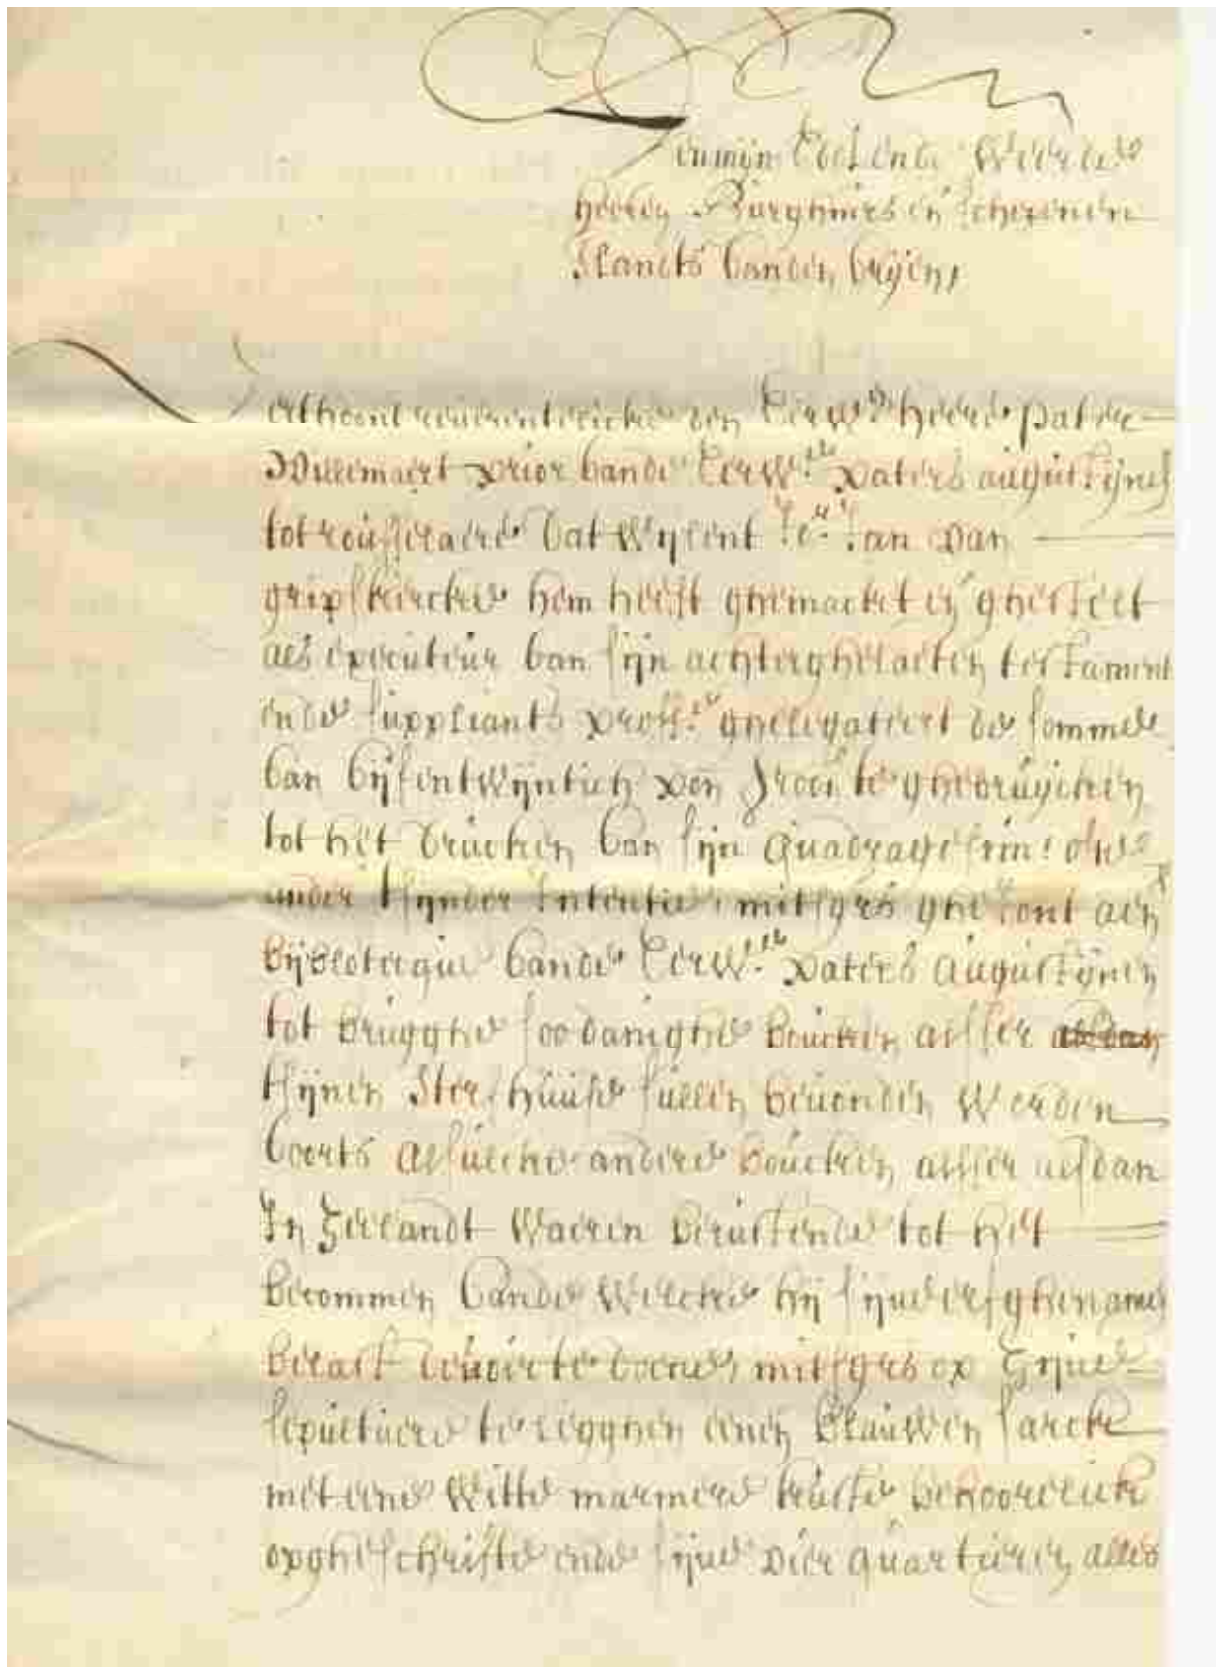 Aen mijn Eed. ende Weerde
heeren Burghmrs en schepenen
slandts vanden vrijen,
Verthoont reverentelicke den Eerw. heere pater
Willemaert prior vande Eerw. paters augustijnen
tot rousselaere dat wylent Jor Jan van
gripskercke hem heeft ghemaeckt en ghestelt
als executeur van sijn achterghelaeten testament
ende suppliants proff. ghelegateert de somme
van vijfentwijntich pon groote te ghebruijcken
tot het drucken van sijn quadragesim: ofte
ander tsynder intentie mitsgrs ghejont aen
bijblioteque vande Eerw. paters Augustijnen
tot brugghe soodanighe boucken alsser
tsijnen sterfhuuse sullen bevonden werden
voorts alsulcke andere boucken alsser alsdan
In Zeelandt waeren berustende tot het
becommen vande welcke hij sijne erfghenamen
belast devoir te doene, mitsgrs op zijne
sepulture te legghen eenen blauwen sarck
met eene witte marmere cruste behoorelick
opgheschrifte ende sijne vier quartieren alles